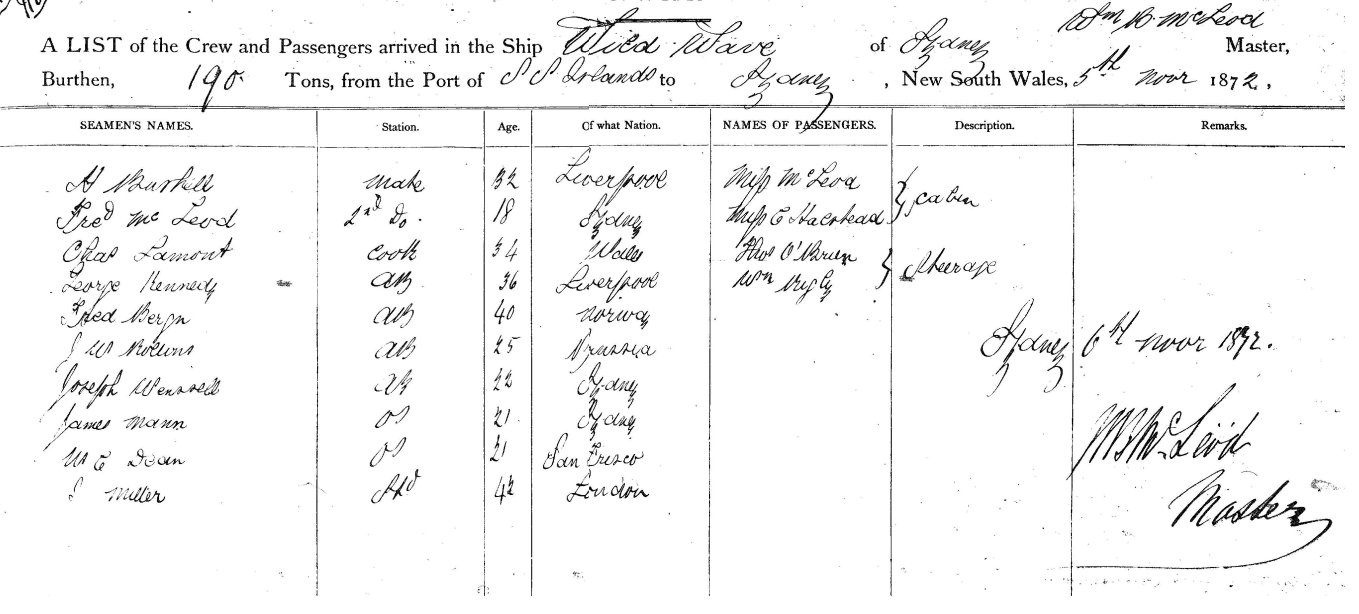 Wm B. McLeod
A LIST of the Crew and Passengers arrived in the Ship Wild Wave of Sydney Master,
Burthen, 190 Tons, from the Port of S S Islands to Sydney, New South Wales, 5th Novr 1872,
SEAMEN'S NAMES. Station. Age. Of what Nation. NAMES OF PASSENGERS. Description. Remarks.
H Mate 32 Liverpool Miss McLeod
Cabin
Fred McLeod 2nd Do. 18 Sydney Miss E Halstead
Chas Lamont Cook 34 Wales Thos O'Brien
Steerage
George Kennedy AB 36 Liverpool Wm
Fred AB 40 Norway
J W AB 25 Prussia Sydney 6th Novr 1872.
Joseph AB 22 Sydney
James Mann OS 21 Sydney
W E Dean OS 21 San Frisco
WB McLeod
J Miller Std 42 London
Master